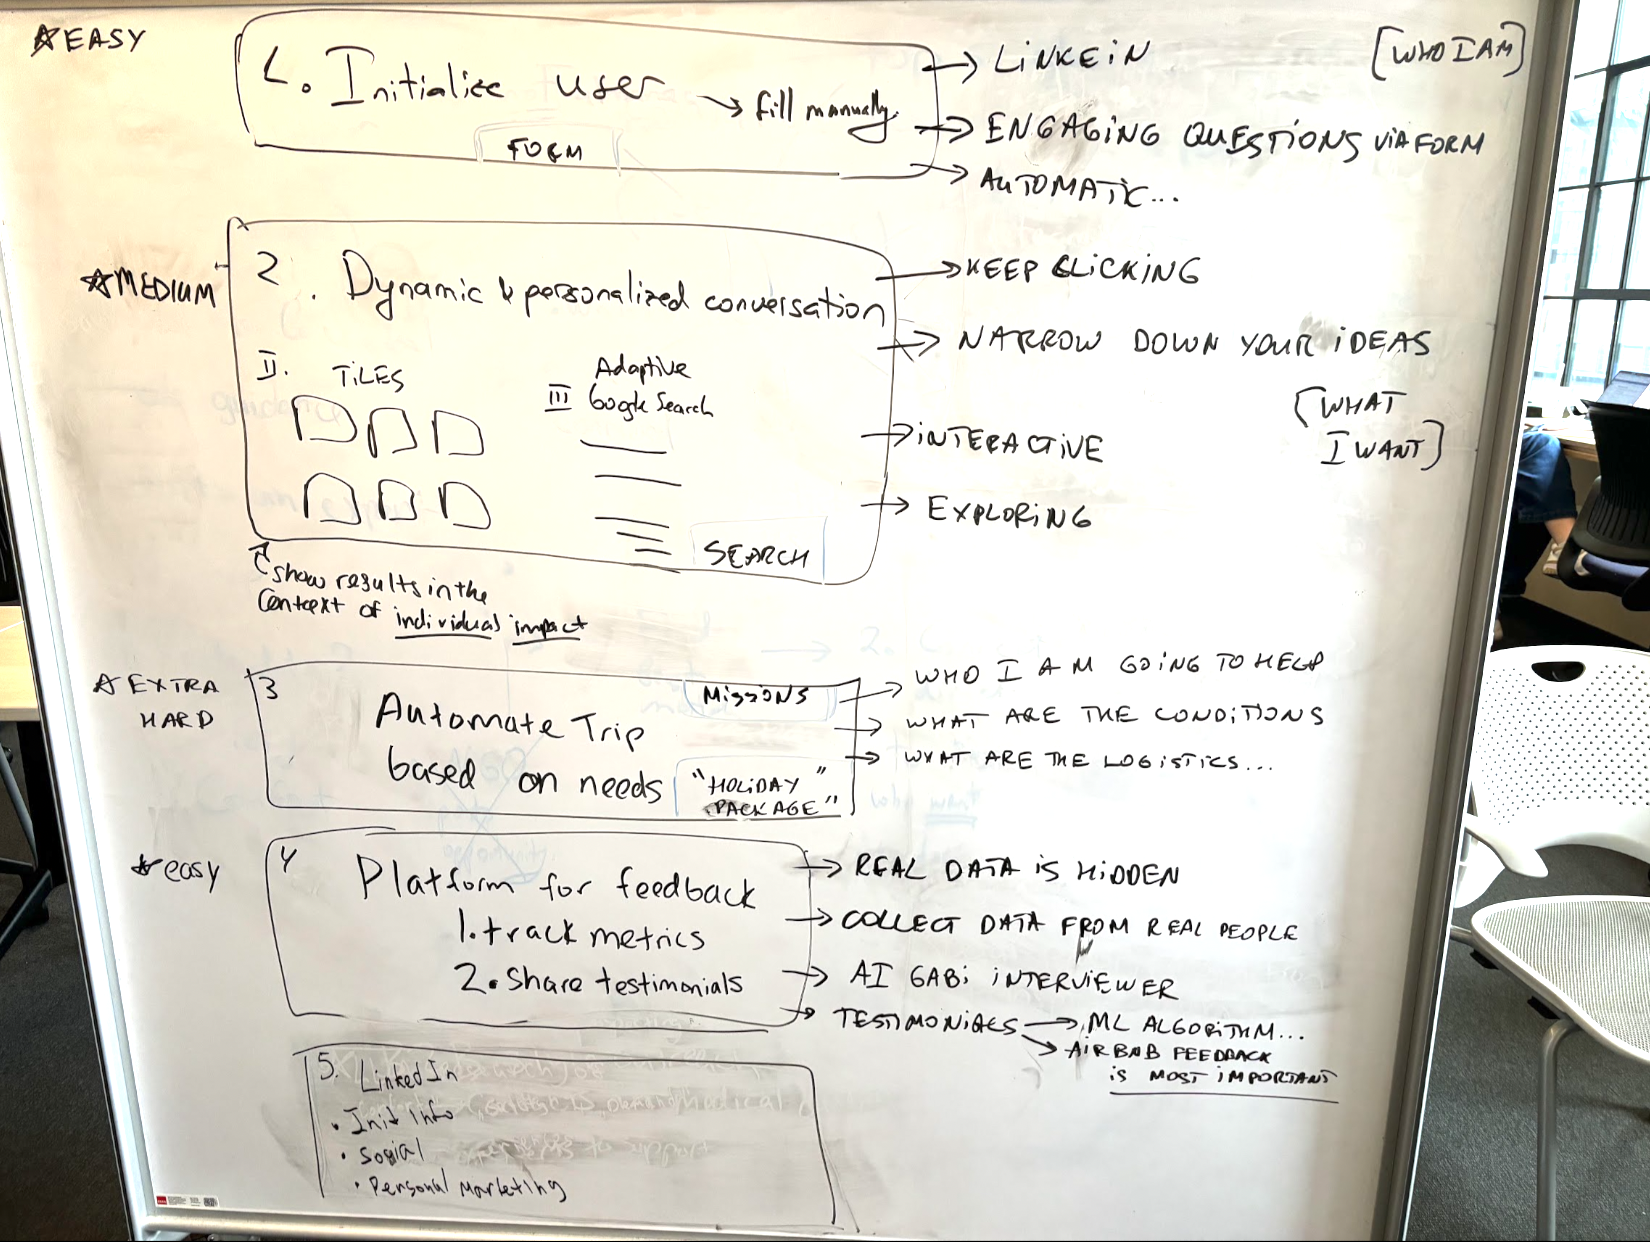 ☆EASY
1. Initialize user
→ fill manually
FORM
→ LINKEIN
[WHO I AM]
→ ENGAGING QUESTIONS VIA FORM
→ AUTOMATIC...
☆MEDIUM
2. Dynamic & personalized conversation
II. TILES
III Adaptive
Google Search
SEARCH
→ KEEP CLICKING
→ NARROW DOWN YOUR IDEAS
→ INTERACTIVE
→ EXPLORING
[WHAT
I WANT]
show results in the
context of individual impact
☆ EXTRA
HARD
3
MISSIONS
Automate Trip
based on needs
"HOLIDAY
PACKAGE"
→ WHO I AM GOING TO HELP
→ WHAT ARE THE CONDITIONS
→ WHAT ARE THE LOGISTICS...
☆easy
4
Platform for feedback
1. track metrics
2. Share testimonials
→ REAL DATA IS HIDDEN
→ COLLECT DATA FROM REAL PEOPLE
→ AI GABI INTERVIEWER
→ TESTIMONIALS → ML ALGORITHM...
→ AIRBNB FEEDBACK
IS MOST IMPORTANT
5. LinkedIn
• Init info
• Social
• Personal Marketing